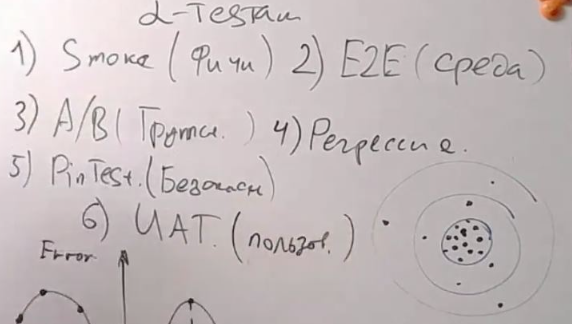 α-Testам
1) Smoke (Фичи) 2) E2E (среда)
3) A/B (Группы.) 4) Регрессия.
5) PinTest. (Безопасн)
6) UAT. (пользов.)
Error